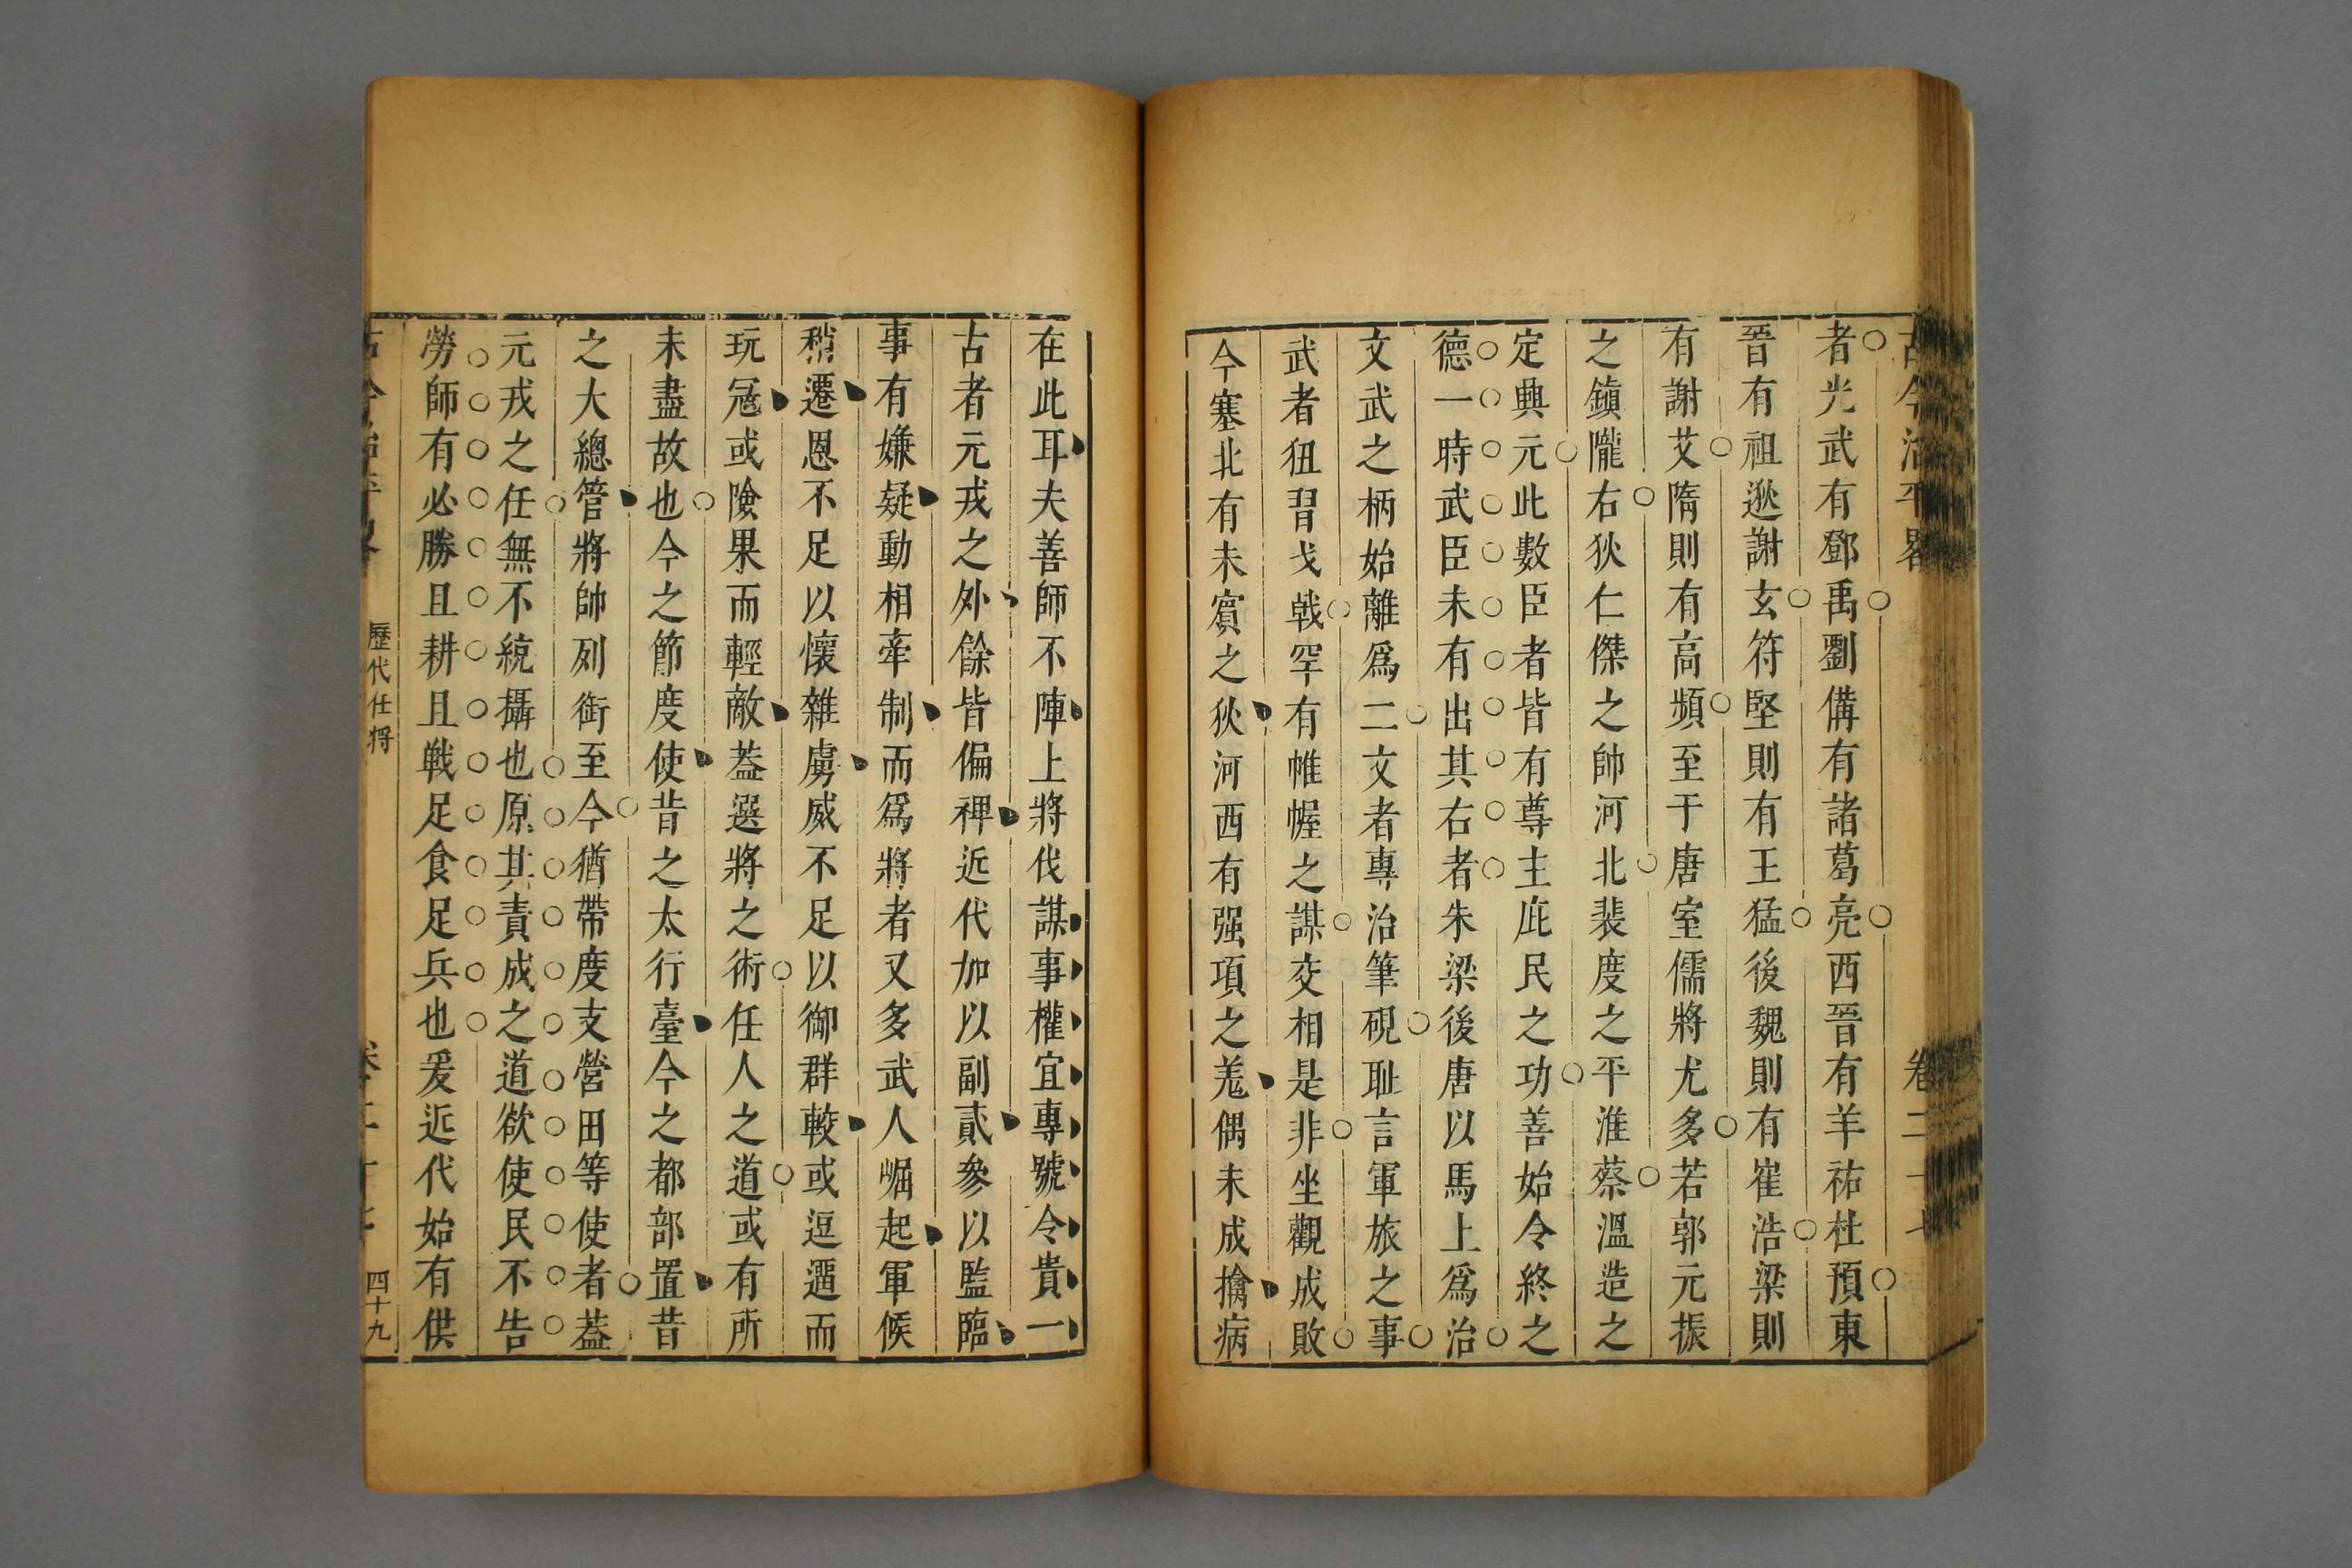 古今治平畧 卷二十七
者光武有鄧禹劉備有諸葛亮西晉有羊祜杜預東
晉有祖逖謝玄符堅則有王猛後魏則有崔浩梁則
有謝艾隋則有高熲至于唐室儒將尤多若郭元振
之鎮隴右狄仁傑之帥河北裴度之平淮蔡溫造之
定興元此數臣者皆有尊主庇民之功善始令終之
德一時武臣未有出其右者朱梁後唐以馬上為治
文武之柄始離為二文者專治筆硯恥言軍旅之事
武者狃習戈戟罕有帷幄之謀交相是非坐觀成敗
今塞北有未賓之狄河西有强項之羌偶未成擒病
在此耳夫善師不陣上將伐謀事權宜專號令貴一
古者元戎之外餘皆偏裨近代加以副貳參以監臨
事有嫌疑動相牽制而為將者又多武人崛起軍候
稍遷恩不足以懷雜虜威不足以御群較或逗遛而
玩寇或險果而輕敵蓋選將之術任人之道或有所
未盡故也今之節度使昔之太行臺今之都部置昔
之大總管將帥列銜至今猶帶度支營田等使者蓋
元戎之任無不統攝也原其責成之道欲使民不告
勞師有必勝且耕且戰足食足兵也爰近代始有供
歷代任將
四十九